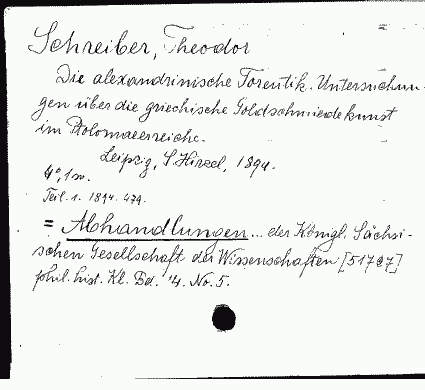 Schreiber, Theodor
Die alexandrinische Toreutik. Untersuchun-
gen über die griechische Goldschmiedekunst
im Ptolomaeerreiche.
Leipzig, S. Hirzel, 1894.
4°, 1 v.
Teil. 1. 1894. 479.
= Abhandlungen ... der Königl. Sächsi-
schen Gesellschaft der Wissenschaften [51727]
phil. hist. Kl. Bd. 14. No. 5.